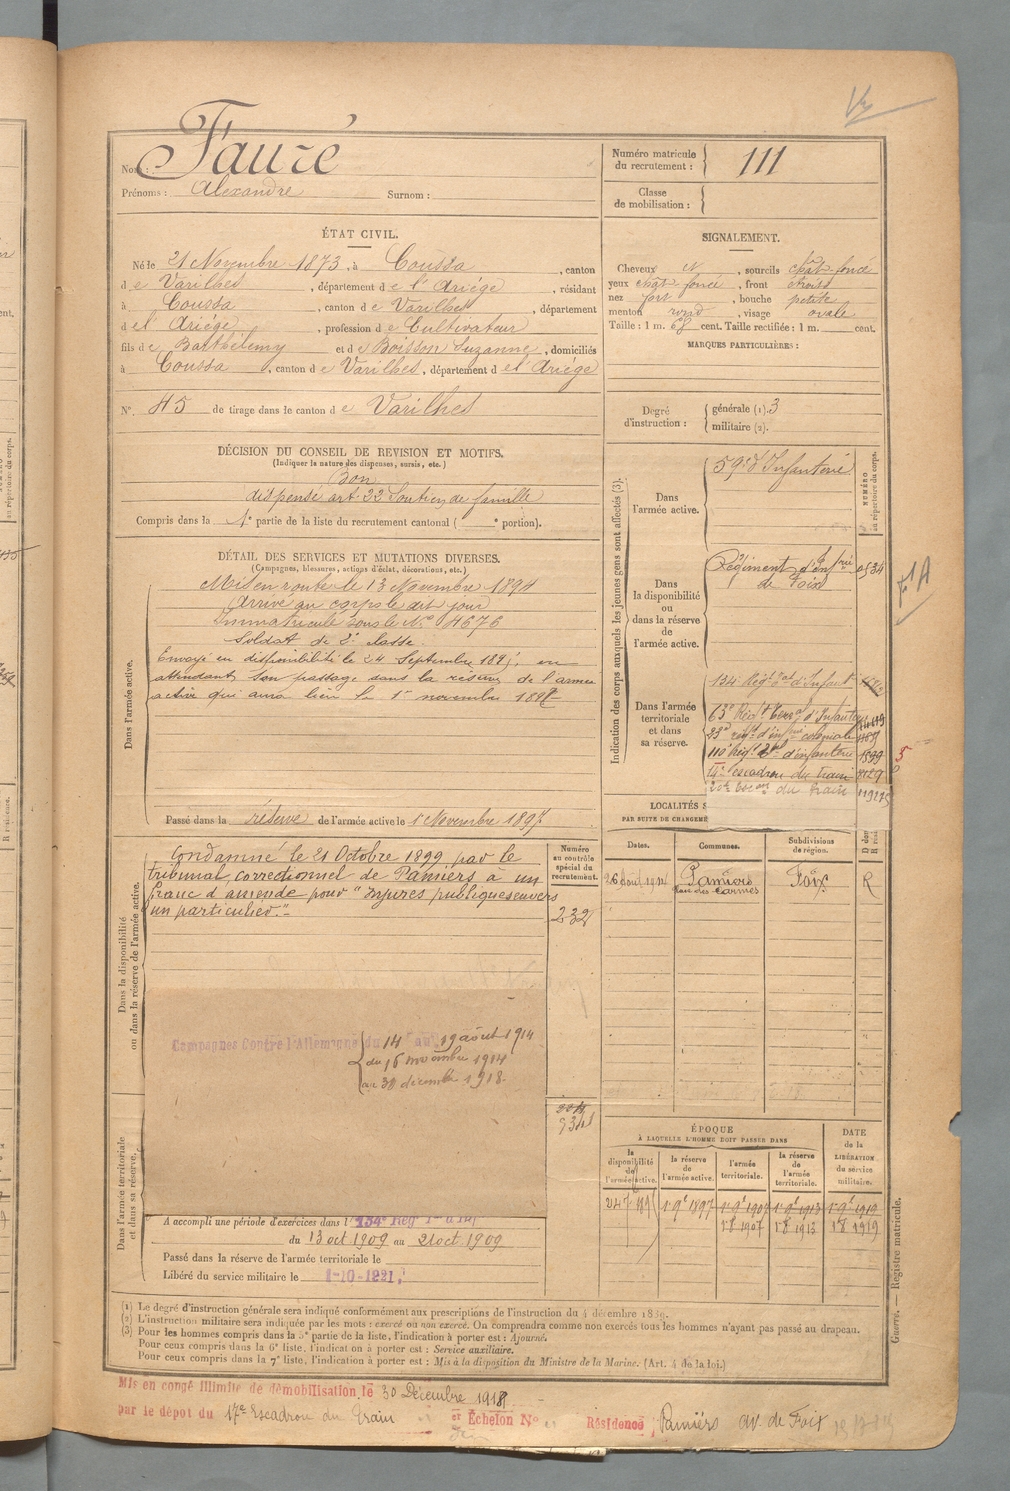 Nom : Fauré
Prénoms : Alexandre Surnom :
Numéro matricule du recrutement : 111
Classe de mobilisation :
ÉTAT CIVIL.
Né le 21 Novembre 1873, à Coussa, canton
de Varilhes, département de l'Ariège, résidant
à Coussa, canton de Varilhes, département
de l'Ariège, profession de Cultivateur
fils de Barthélemy et de Boisson Suzanne, domiciliés
à Coussa, canton de Varilhes, département de l'Ariège
N° 45 de tirage dans le canton de Varilhes
SIGNALEMENT.
Cheveux et, sourcils chât. foncé
yeux chât. foncé, front étroit
nez fort, bouche petite
menton rond, visage ovale
Taille : 1 m. 68 cent. Taille rectifiée : 1 m. cent.
MARQUES PARTICULIÈRES :
Degré d'instruction : générale (1). 3
militaire (2).
DÉCISION DU CONSEIL DE REVISION ET MOTIFS.
(Indiquer la nature des dispenses, sursis, etc.)
Bon
dispensé art. 22 Soutien de famille
Compris dans la 1e partie de la liste du recrutement cantonal ( e portion).
DÉTAIL DES SERVICES ET MUTATIONS DIVERSES.
(Campagnes, blessures, actions d'éclat, décorations, etc.)
Dans l'armée active.
Mis en route le 13 Novembre 1894
Arrivé au corps le dit jour
Immatriculé sous le N° 4676
Soldat de 2e classe
Envoyé en disponibilité le 24 Septembre 1895, en
attendant son passage dans la réserve de l'armée
active qui aura lieu le 1er novembre 1897
Passé dans la réserve de l'armée active le 1 Novembre 1897
Indication des corps auxquels les jeunes gens sont affectés (3).
NUMÉRO au répertoire du corps.
Dans l'armée active.
59e d'Infanterie
Dans la disponibilité ou dans la réserve de l'armée active.
Régiment d'Infrie 0534
de Foix
Dans l'armée territoriale et dans sa réserve.
134 Régt tal d'Infant
63e Régt Terral d'Infanterie
23e régt d'infrie coloniale
110e Régt tal d'infanterie 1899
escadron du train
du train
LOCALITÉS
PAR SUITE DE CHANGEME
Dates. Communes. Subdivisions de région.
26 avril 1914 Pamiers Foix R
rue des Carmes
Dans la disponibilité ou dans la réserve de l'armée active.
Condamné le 21 Octobre 1899 par le
tribunal correctionnel de Pamiers à un
franc d'amende pour "Injures publiques envers
un particulier."
Numéro au contrôle spécial du recrutement.
232
Campagnes Contre l'Allemagne du 14 au 19 août 1914
du 16 novembre 1914
au 30 décembre 1918.
Dans l'armée territoriale et dans sa réserve.
A accompli une période d'exercices dans l' 134e Rég
du 13 oct 1909 au 21 oct 1909
Passé dans la réserve de l'armée territoriale le
Libéré du service militaire le 1-10-1921.
ÉPOQUE
À LAQUELLE L'HOMME DOIT PASSER DANS
DATE de la LIBÉRATION du service militaire.
la disponibilité de l'armée active. la réserve de l'armée active. l'armée territoriale. la réserve de l'armée territoriale.
1 9e 1897 1 9e 1907 1 9e 1913 1 9e 1919
1 8 1907 1 8 1913 1 8 1919
(1) Le degré d'instruction générale sera indiqué conformément aux prescriptions de l'instruction du 4 décembre 1889.
(2) L'instruction militaire sera indiquée par les mots : exercé ou non exercé. On comprendra comme non exercés tous les hommes n'ayant pas passé au drapeau.
(3) Pour les hommes compris dans la 5e partie de la liste, l'indication à porter est : Ajourné.
Pour ceux compris dans la 6e liste, l'indication à porter est : Service auxiliaire.
Pour ceux compris dans la 7e liste, l'indication à porter est : Mis à la disposition du Ministre de la Marine. (Art. 4 de la loi.)
Guerre. — Registre matricule.
Mis en congé illimité de démobilisation le 30 Décembre 1918
par le dépôt du 17e Escadron du Train et Échelon N° Résidence Pamiers av. de Foix